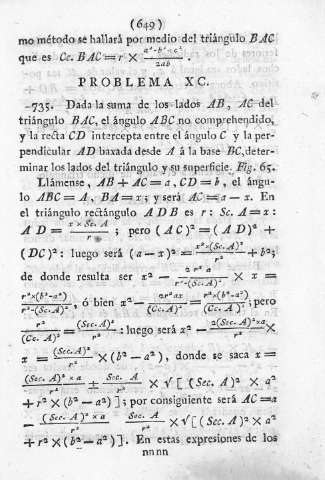 (649)
mo método se hallará por medio del triángulo BAC
que es Cc. BAC = r × (a² - b² + c²)/2ab .
PROBLEMA XC.
735. Dada la suma de los lados AB, AC del
triángulo BAC, el ángulo ABC no comprehendido,
y la recta CD intercepta entre el ángulo C y la per-
pendicular AD baxada desde A á la base BC, deter-
minar los lados del triángulo y su superficie. Fig. 65.
Llámense, AB + AC = a, CD = b, el ángu-
lo ABC = A, BA = x; y será AC = a — x. En
el triángulo rectángulo ADB es r : Sc. A = x :
AD = (x × Sc. A)/r ; pero (AC)² = (AD)² +
(DC)² : luego será (a — x)² = x² × (Sc. A)²/r² + b²;
de donde resulta ser x² — 2r²a/(r² - (Sc. A)²) × x =
r² × (b² - a²)/(r² - (Sc. A)²), ó bien x² — 2r²ax/(Cc. A)² = r² × (b² - a²)/(Cc. A)²; pero
r²/(Cc. A)² = (Sec. A)²/r² : luego será x² — 2(Sec. A)² × a/r² ×
x = (Sec. A)²/r² × (b² — a²), donde se saca x =
(Sec. A)² × a/r² ± Sec. A/r² × √[(Sec. A)² × a²
+ r² × (b² — a²)]; por consiguiente será AC = a
— (Sec. A)² × a/r² Sec. A/r² × √[(Sec. A)² × a²
+ r² × (b² — a²)]. En estas expresiones de los
nnnn